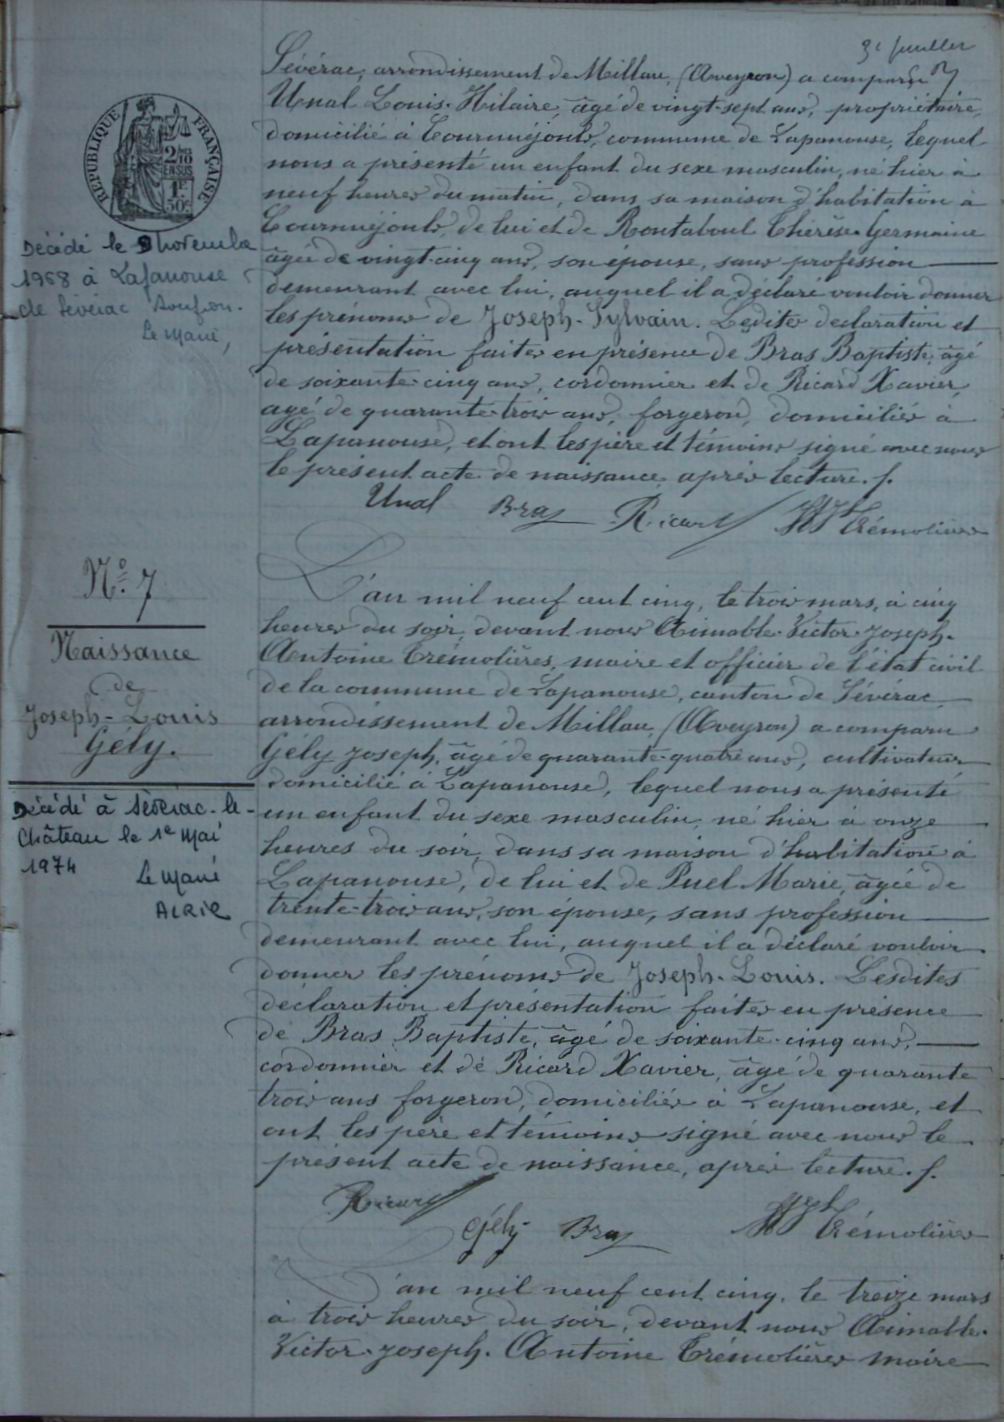 3e feuillet
Sévérac, arrondissement de Millau, (Aveyron) a comparu
Unal Louis-Hilaire, âgé de vingt-sept ans, propriétaire,
domicilié à Tourmejouls, commune de Lapanouse, lequel
nous a présenté un enfant du sexe masculin, né hier à
neuf heures du matin, dans sa maison d'habitation à
Tourmejouls, de lui et de Rontaboul Thérèse Germaine
âgée de vingt-cinq ans, son épouse, sans profession
demeurant avec lui, auquel il a déclaré vouloir donner
les prénoms de Joseph-Sylvain. Lesdites déclaration et
présentation faites en présence de Bras Baptiste, âgé
de soixante-cinq ans, cordonnier et de Ricard Xavier,
agé de quarante-trois ans, forgeron, domiciliés à
Lapanouse, et ont les père et témoins signé avec nous
le présent acte de naissance, après lecture. /.
Unal Bras Ricard Trémolières
RÉPUBLIQUE FRANÇAISE
2/10
EN SUS
1F
50c
Décédé le 9 novembre
1968 à Lapanouse
de Séverac
Le Maire,
No. 7
Naissance
de
Joseph-Louis
Gély.
Décédé à Séverac-le-
Château le 1e Mai
1974
Le Maire
L'an mil neuf cent cinq, le trois mars, à cinq
heures du soir, devant nous Aimable-Victor-Joseph-
Antoine Trémolières, maire et officier de l'état civil
de la commune de Lapanouse, canton de Sévérac,
arrondissement de Millau, (Aveyron) a comparu
Gély Joseph, âgé de quarante-quatre ans, cultivateur
domicilié à Lapanouse, lequel nous a présenté
un enfant du sexe masculin, né hier à onze
heures du soir, dans sa maison d'habitation à
Lapanouse, de lui et de Puel Marie, âgée de
trente-trois ans, son épouse, sans profession
demeurant avec lui, auquel il a déclaré vouloir
donner les prénoms de Joseph-Louis. Lesdites
déclaration et présentation faites en présence
de Bras Baptiste, âgé de soixante-cinq ans,
cordonnier et de Ricard Xavier, âgé de quarante
trois ans forgeron, domiciliés à Lapanouse, et
ont les père et témoins signé avec nous le
présent acte de naissance, après lecture. /.
Ricard Gély Bras Trémolières
L'an mil neuf cent cinq, le treize mars
à trois heures du soir, devant nous Aimable-
Victor-Joseph-Antoine Trémolières maire